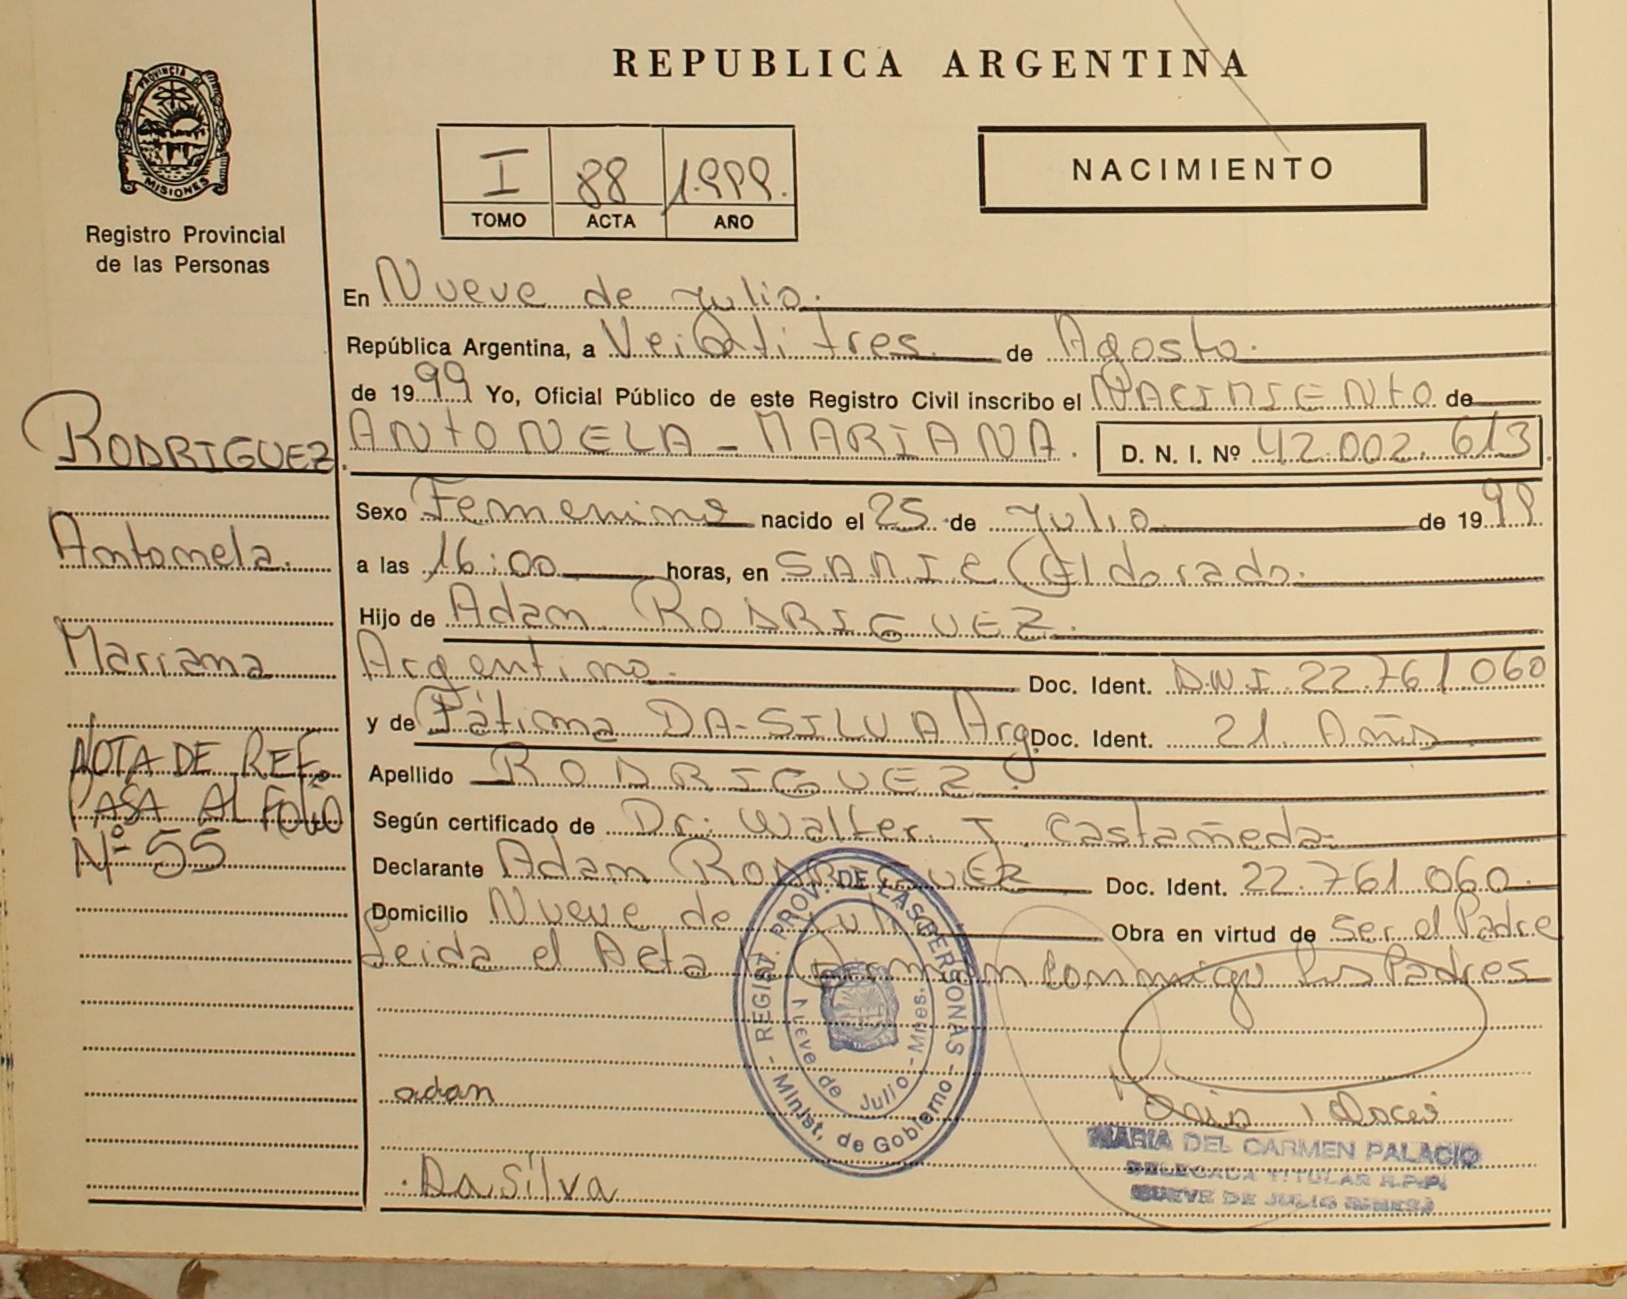 REPUBLICA ARGENTINA
PROVINCIA DE
MISIONES
Registro Provincial
de las Personas
I 88 1.999.
TOMO ACTA AÑO
NACIMIENTO
En Nueve de Julio.
República Argentina, a Veintitres de Agosto.
de 1999 Yo, Oficial Público de este Registro Civil inscribo el NACIMIENTO de
ANTONELA - MARIANA. D. N. I. Nº 42.002.613
Sexo Femenino nacido el 25 de Julio de 1999
a las 16:00 horas, en SAMIC Eldorado.
Hijo de Adam RODRIGUEZ.
Argentino. Doc. Ident. D.N.I. 22.761.060
y de Fátima DA-SILVA Arg. Doc. Ident. 21 Años
Apellido RODRIGUEZ.
Según certificado de Dr: Walter. J. Castañeda
Declarante Adam RODRIGUEZ Doc. Ident. 22.761.060.
Domicilio Nueve de Julio Obra en virtud de Ser el Padre
Leida el Acta la Firman Conmigo los Padres
adan
Da silva
RODRIGUEZ
Antonela.
Mariana
NOTA DE REF.
PASA AL FOLIO
Nº 55
REGIST. PROV. DE LAS PERSONAS
Nueve de Julio - Mnes.
Minist. de Gobierno
MARIA DEL CARMEN PALACIO
DELEGADA TITULAR R.P.P.
NUEVE DE JULIO